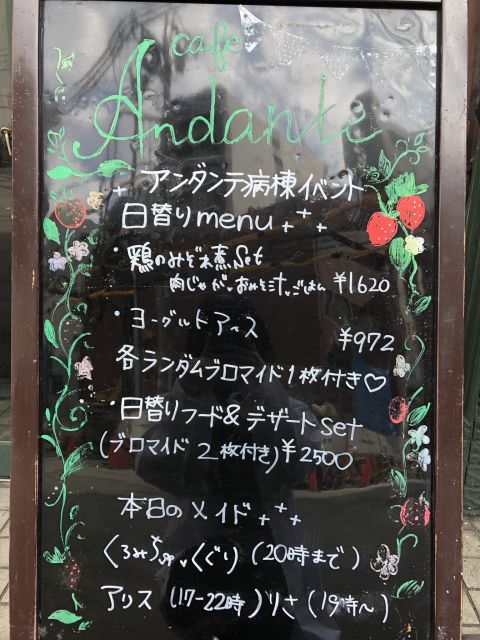 cafe
Andante
アンダンテ病棟イベント
日替りmenu
・鶏のみぞれ煮Set
肉じゃが。おみそ汁。ごはん ¥1620
・ヨーグルトアイス
¥972
各ランダムブロマイド1枚付き♡
・日替りフード&デザートset
(ブロマイド2枚付き)¥2500
本日のメイド
くるみ くぐり (20時まで)
アリス (17-22時) りさ (19時~)